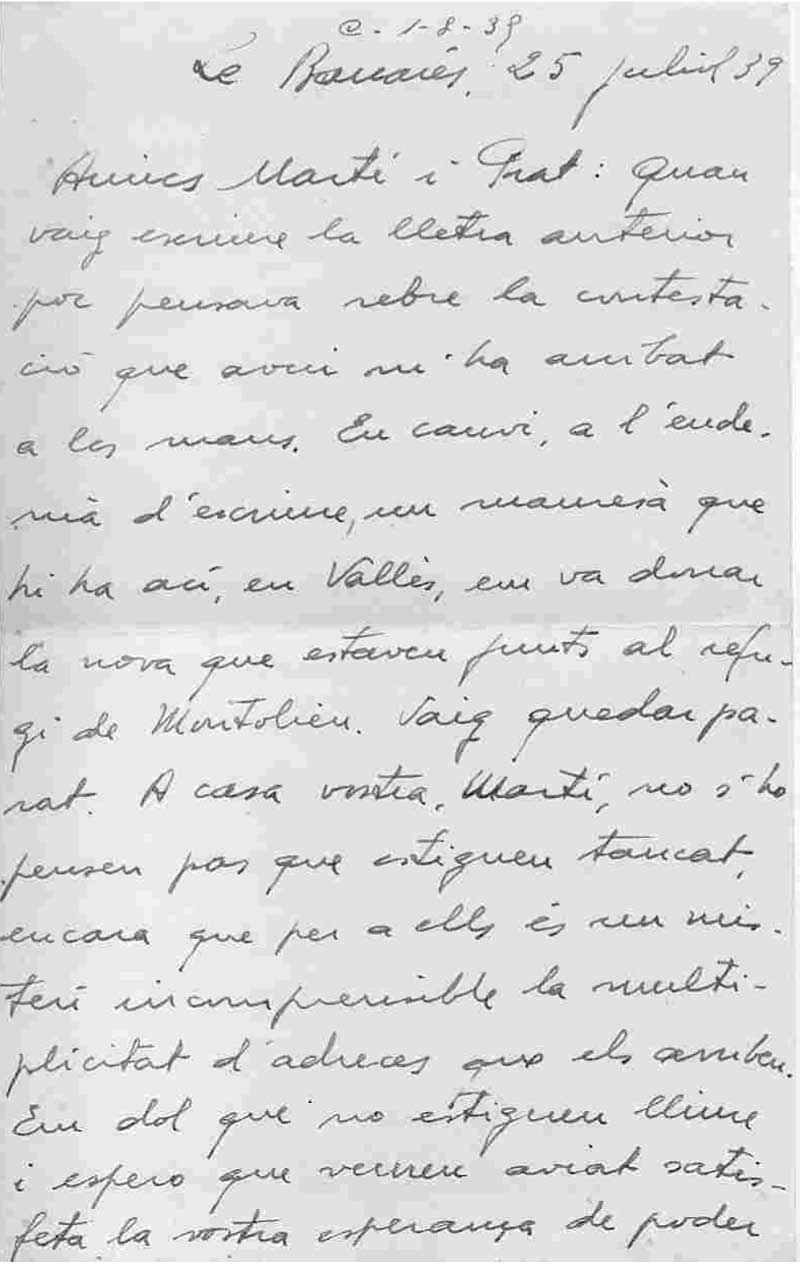 C. 1-8-39
Le Barcarès, 25 juliol 39
Amics Martí i Prat: Quan
vaig escriure la lletra anterior
poc pensava rebre la contesta-
ció que avui m'ha arribat
a les mans. En canvi, a l'ende-
mà d'escriure, un manresà que
hi ha ací, en Vallès, em va donar
la nova que estaveu junts al refu-
gi de Montolieu. Vaig quedar pa-
rat. A casa vostra, Martí, no s'ho
pensen pas que estigueu tancat,
encara que per a ells és un mis-
teri incomprensible la multi-
plicitat d'adreces que els arriben.
Em dol que no estigueu lliure
i espero que veureu aviat satis-
feta la vostra esperança de poder